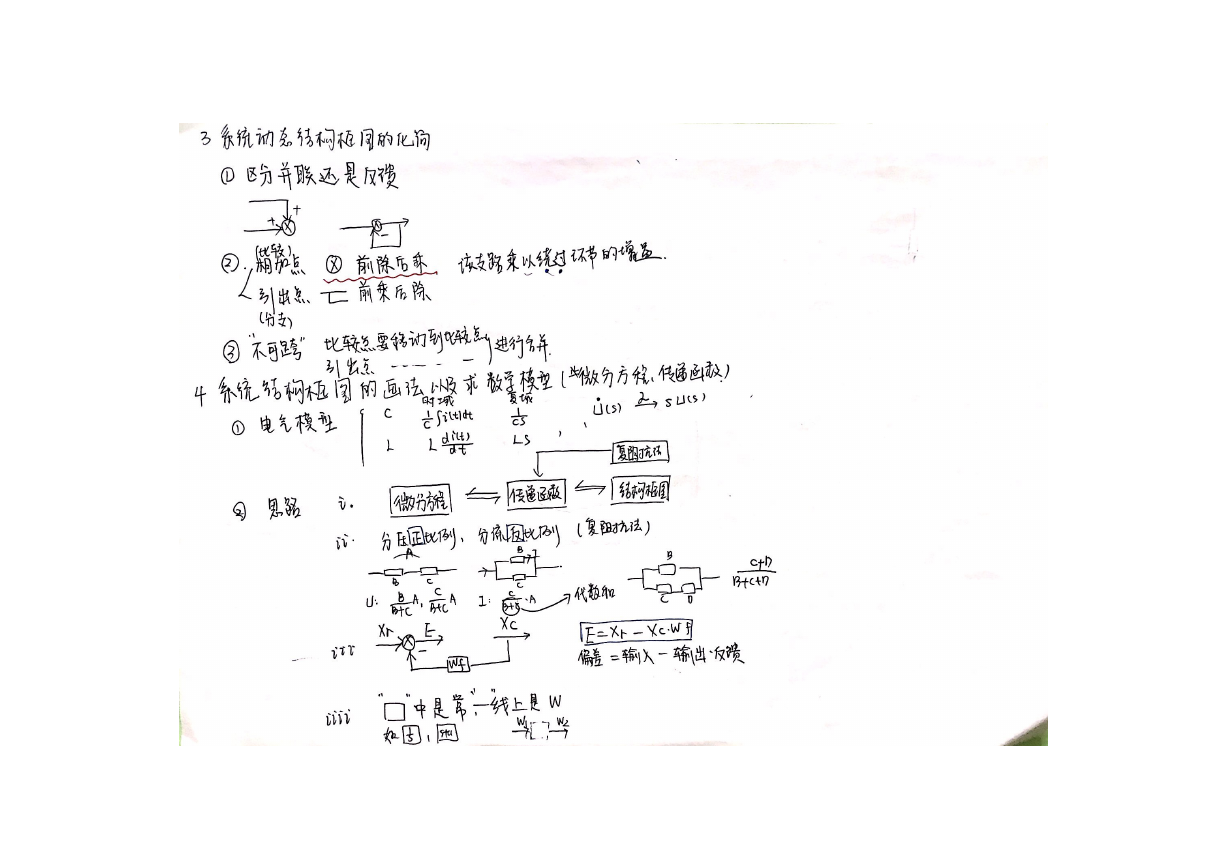 3 系统动态结构框图的化简
① 区分并联还是反馈
+ + −
② (比较) 相加点 ⊗ 前除后乘 该支路乘以绕过环节的增益.
引出点 前乘后除
(分支)
③ "不可跨" 比较点要移动到比较点 进行合并.
引出点 - - - - -
4 系统结构框图的画法以及求数学模型(微分方程、传递函数)
时域 复域
① 电气模型 C 1/C ∫i(t)dt 1/CS U̇(s) → sU(s)
L L di(t)/dt LS
复阻抗法
② 思路 i. 微分方程 ⇌ 传递函数 ⇌ 结构框图
ii. 分压正比例、分流反比例 (复阻抗法)
A B I B C+D
B C C C D B+C+D
U: B/(B+C) A, C/(B+C) A I: C/(B+C)·A → 代数和
iii Xr E − Wf Xc E=Xr − Xc·Wf
偏差 = 输入 − 输出·反馈
iiii "□"中是常, "一"线上是W
如 , W1 W2